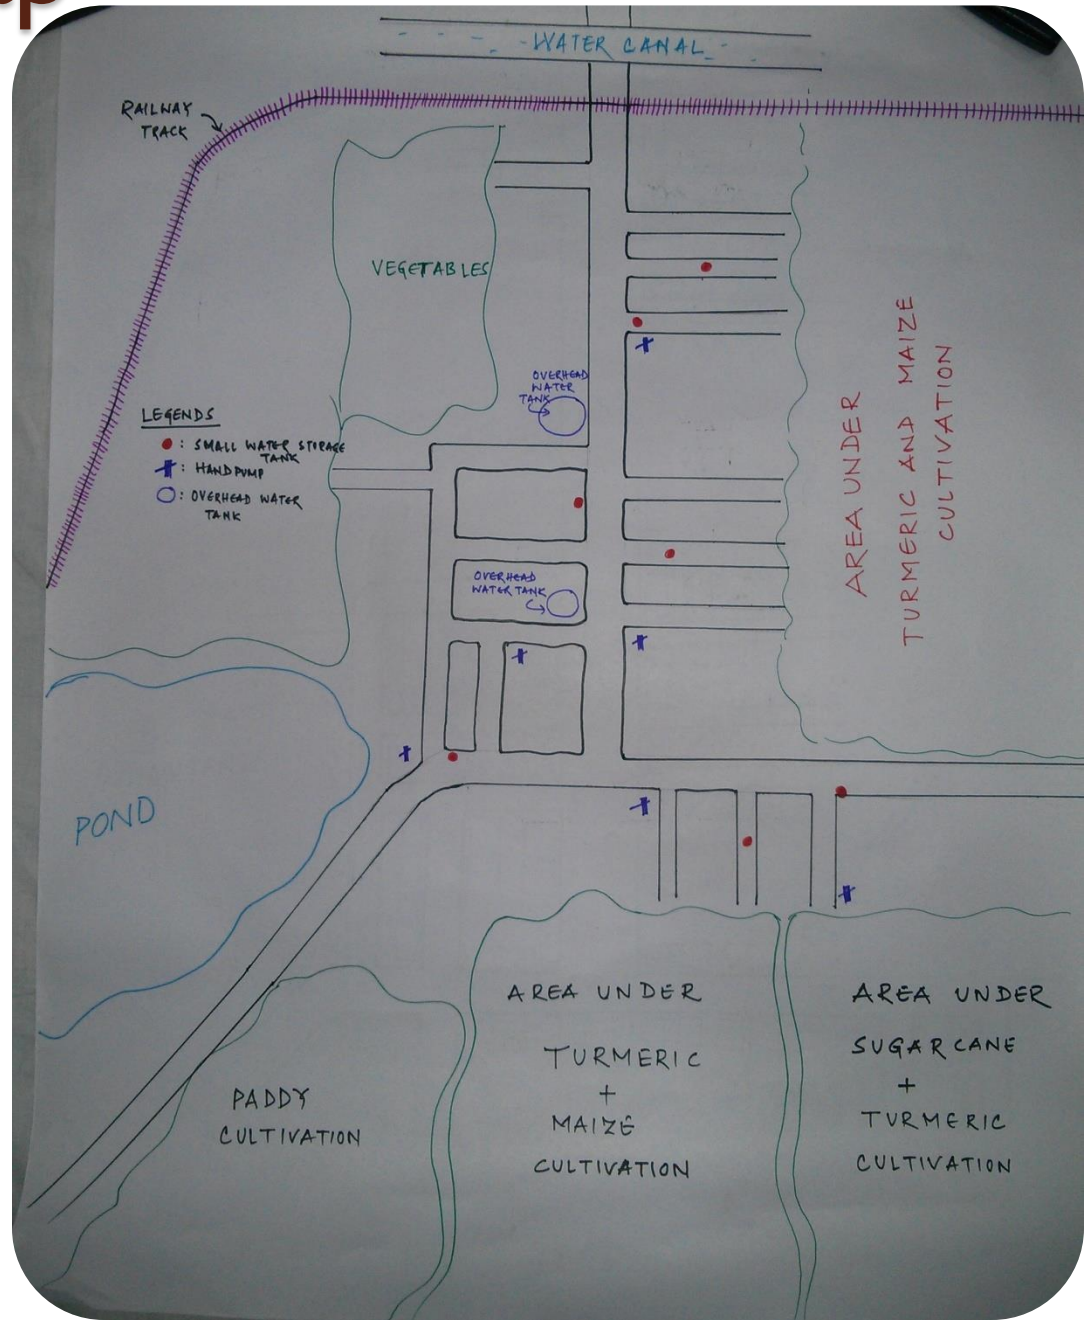 WATER CANAL
RAILWAY
TRACK
VEGETABLES
OVERHEAD
WATER
TANK
LEGENDS
: SMALL WATER STORAGE
TANK
: HANDPUMP
: OVERHEAD WATER
TANK
OVERHEAD
WATER TANK
AREA UNDER
TURMERIC AND MAIZE
CULTIVATION
POND
AREA UNDER
TURMERIC
+
MAIZE
CULTIVATION
AREA UNDER
SUGARCANE
+
TURMERIC
CULTIVATION
PADDY
CULTIVATION